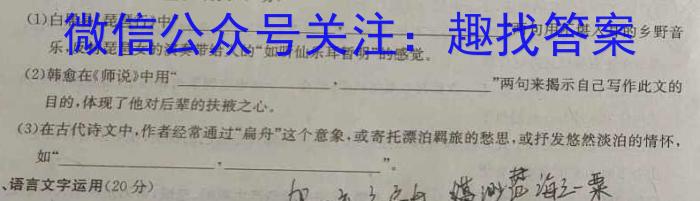 (1)白
微信公众号关注：趣找答案
的乡野音
乐,
的"如听仙乐耳暂明"的感觉。
(2)韩愈在《师说》中用"____________,____________"两句来揭示自己写作此文的
目的,体现了他对后辈的扶掖之心。
(3)在古代诗文中,作者经常通过"扁舟"这个意象,或寄托漂泊羁旅的愁思,或抒发悠然淡泊的情怀,
如"____________,____________"。
、语言文字运用(20分)
海之一粟